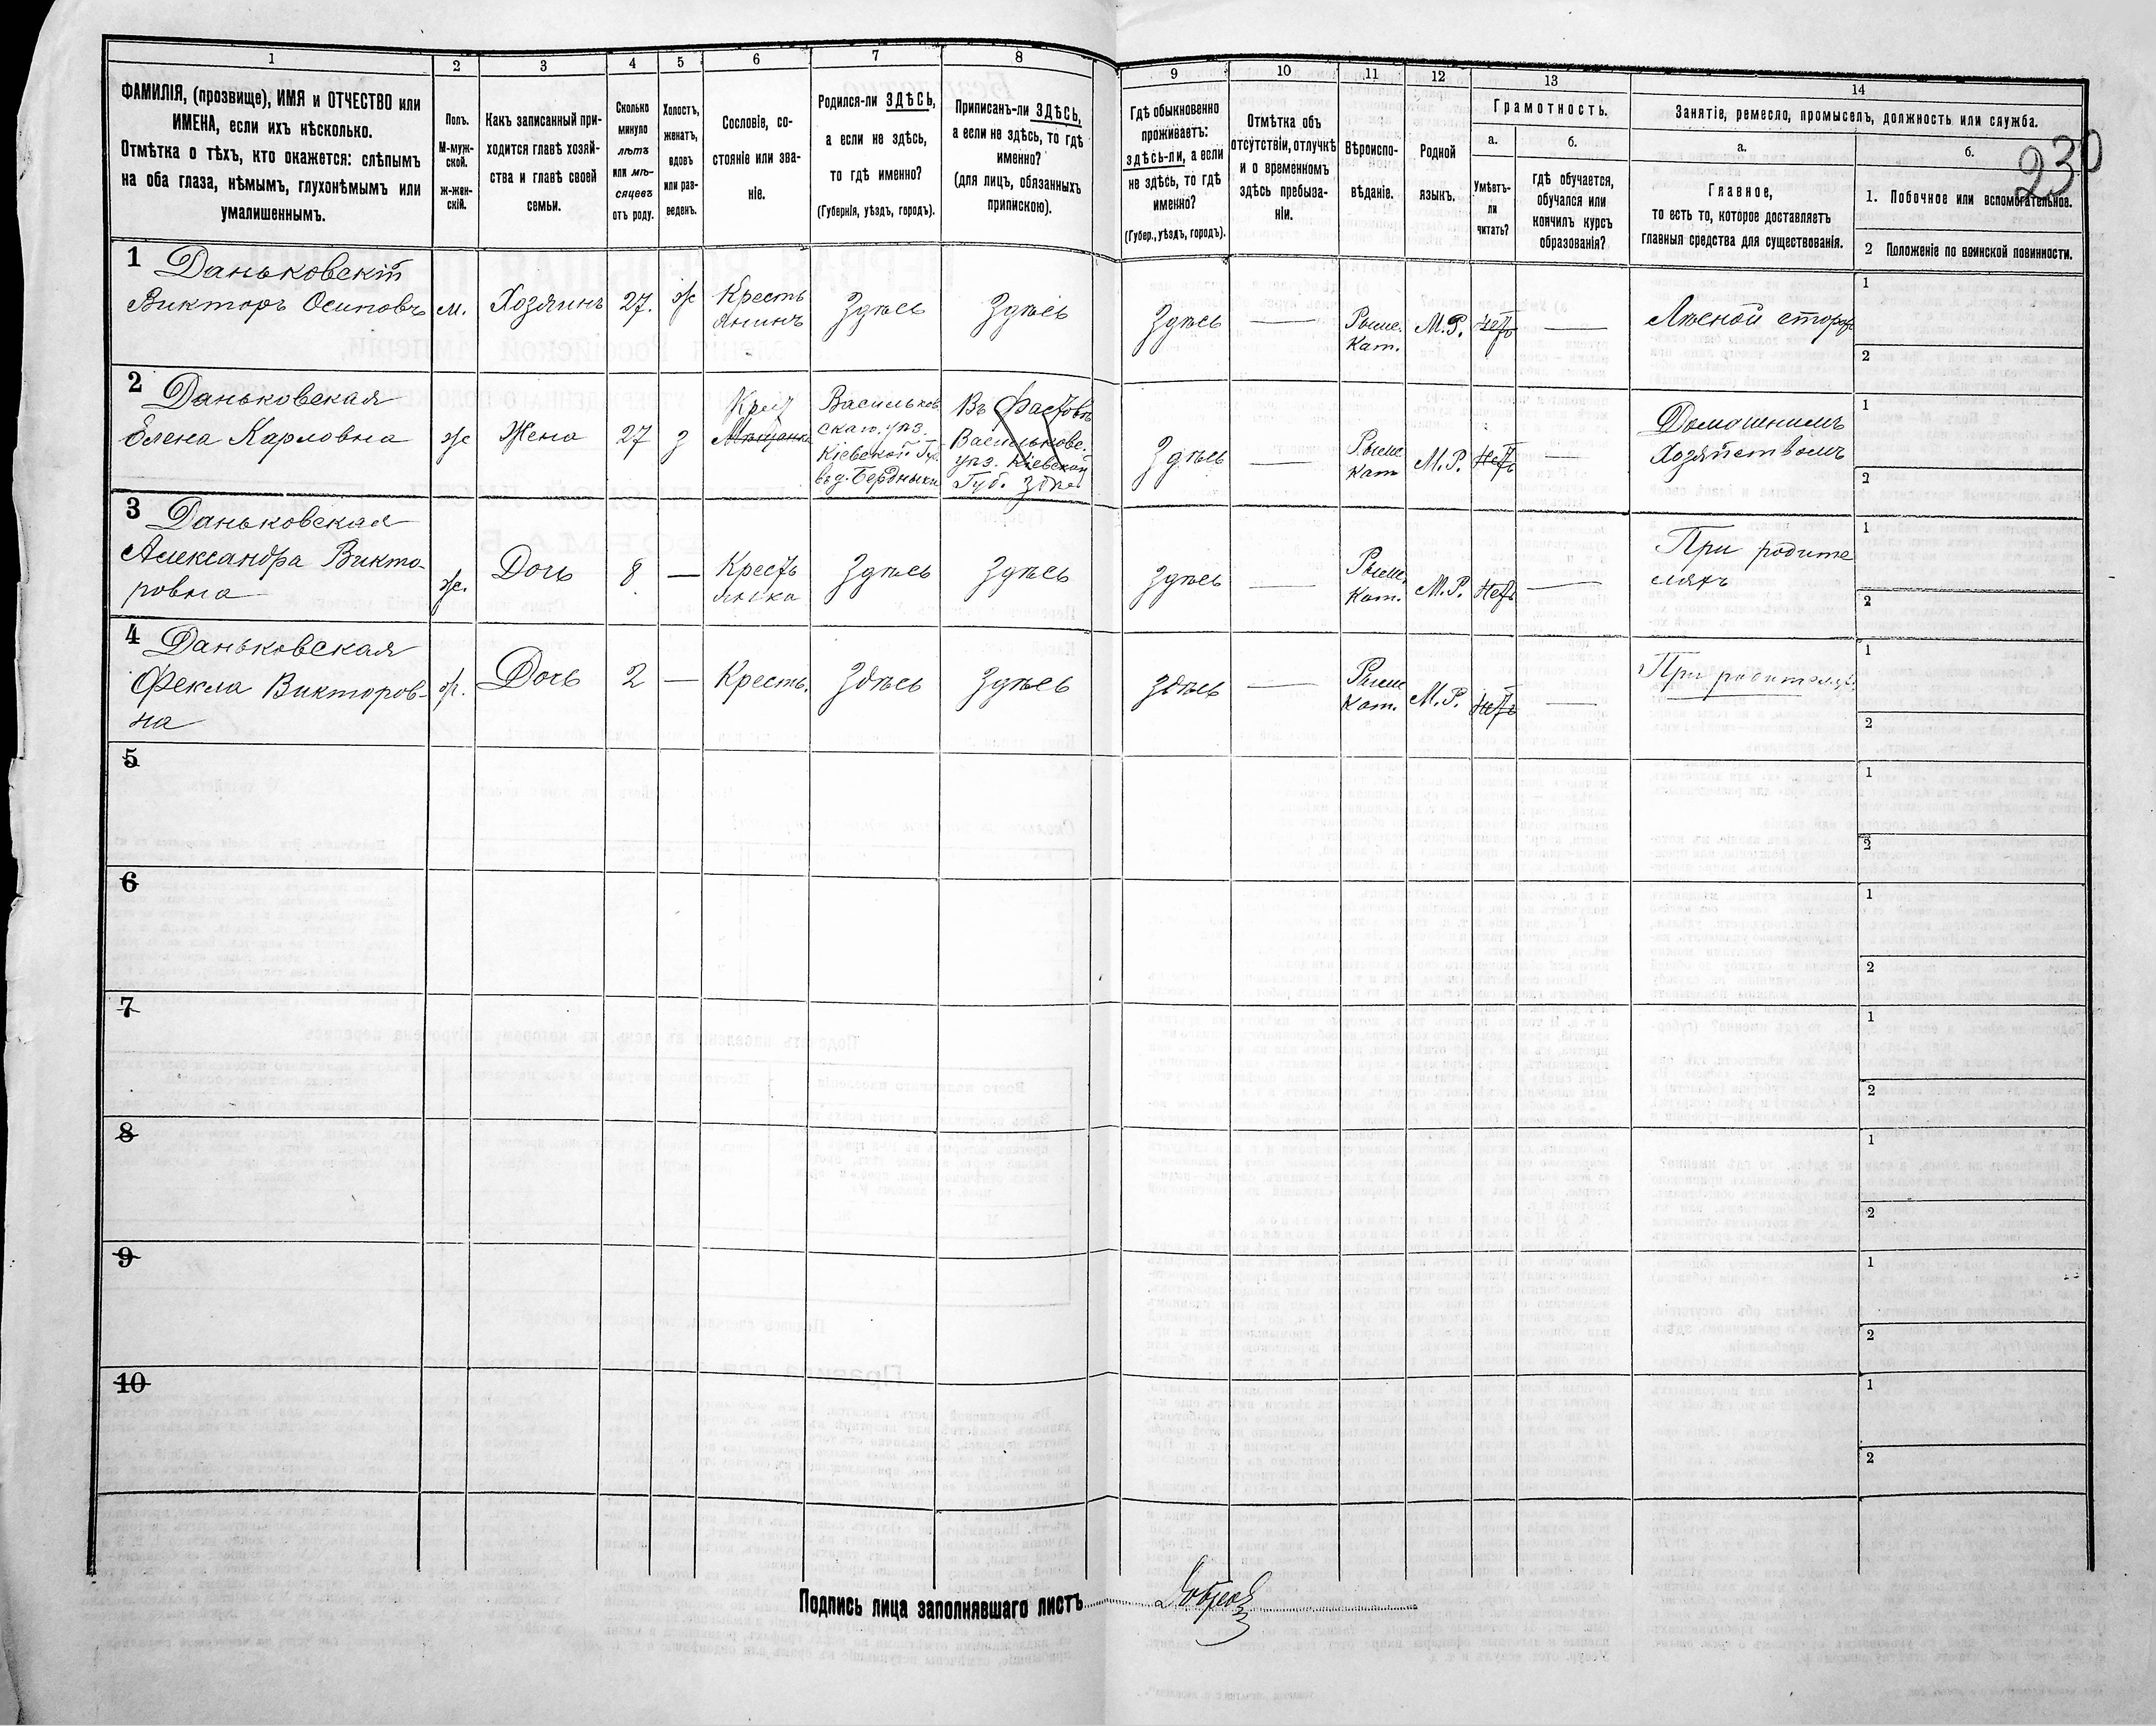 1
2
3
4
5
6
7
8
9
10
11
12
13
14
230
ФАМИЛІЯ, (прозвище), ИМЯ и ОТЧЕСТВО или
ИМЕНА, если ихъ нѣсколько.
Отмѣтка о тѣхъ, кто окажется: слѣпымъ
на оба глаза, нѣмымъ, глухонѣмымъ или
умалишеннымъ.
Полъ.
М-муж-
ской.
ж-жен-
скій.
Какъ записанный при-
ходится главѣ хозяй-
ства и главѣ своей
семьи.
Сколько
минуло
лѣтъ
или мѣ-
сяцевъ
отъ роду.
Холостъ,
женатъ,
вдовъ
или раз-
веденъ.
Сословіе, со-
стояніе или зва-
ніе.
Родился-ли ЗДѢСЬ,
а если не здѣсь,
то гдѣ именно?
(Губернія, уѣздъ, городъ).
Приписанъ-ли ЗДѢСЬ,
а если не здѣсь, то гдѣ
именно?
(для лицъ, обязанныхъ
припискою).
Гдѣ обыкновенно
проживаетъ:
здѣсь-ли, а если
не здѣсь, то гдѣ
именно?
(Губер., уѣздъ, городъ).
Отмѣтка объ
отсутствіи, отлучкѣ
и о временномъ
здѣсь пребыва-
ніи.
Вѣроиспо-
вѣданіе.
Родной
языкъ.
Грамотность.
а.
Умѣетъ-
ли
читать?
б.
гдѣ обучается,
обучался или
кончилъ курсъ
образованія?
Занятіе, ремесло, промыселъ, должность или служба.
а.
Главное,
то есть то, которое доставляетъ
главныя средства для существованія.
б.
1. Побочное или вспомогательное.
2 Положеніе по воинской повинности.
1 Даньковскій
Викторъ Осиповъ
м.
Хозяинъ
27.
ж
Кресть
янинъ
Здѣсь
Здѣсь
Здѣсь
—
Римс.
Кат.
М.Р.
Нѣтъ
—
Лѣсной сторож
1
2
2 Даньковская
Елена Карловна
ж
Жена
27
з
Крест
Мѣщанка
Васильков
скаго. уѣз.
Кіевской Гу.
в д. Бердныки
Въ Фастовѣ
Васильковс.
уѣз. Кіевской
Губ. здѣсь
Здѣсь
—
Римс
Кат
М.Р.
Нѣтъ
—
Домашнимъ
Хозяйствомъ
1
2
3 Даньковская
Александра Викто-
ровна
ж.
Дочь
8
—
Кресть
янка
Здѣсь
Здѣсь
Здѣсь
—
Римс.
Кат.
М.Р.
Нѣтъ
—
При родите
ляхъ
1
2
4 Даньковская
Фекла Викторов-
на
ж.
Дочь
2
—
Кресть.
Здѣсь
Здѣсь
Здѣсь
—
Римс
Кат.
М.Р.
Нѣтъ
—
При родителях
1
2
5
1
2
6
1
2
7
1
2
8
1
2
9
1
2
10
1
2
Подпись лица заполнявшаго листъ